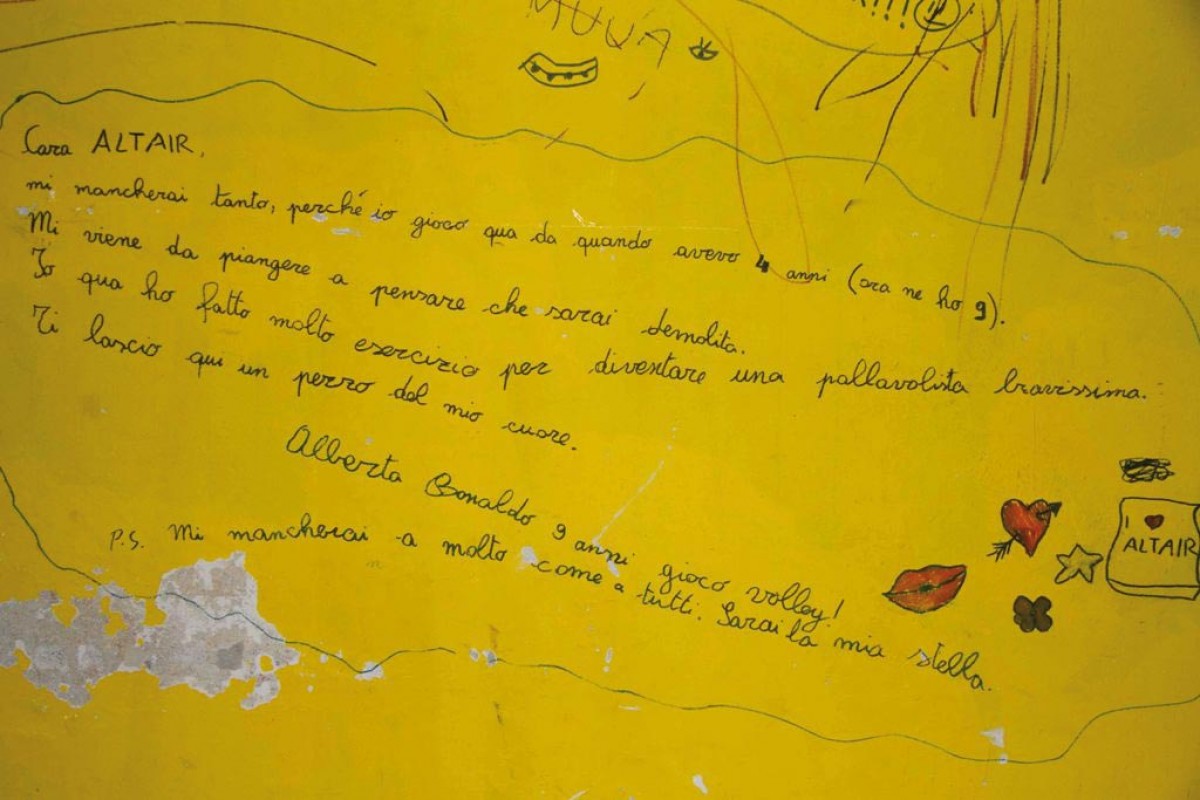 MUUA
!!!
Cara ALTAIR,
mi mancherai tanto, perché io gioco qua da quando avevo 4 anni (ora ne ho 9).
Mi viene da piangere a pensare che sarai demolita.
Io qua ho fatto molto esercizio per diventare una pallavolista bravissima.
Ti lascio qui un pezzo del mio cuore.
Alberta Bonaldo 9 anni gioco volley!
P.S. Mi mancherai a molto come a tutti. Sarai la mia stella.
I
ALTAIR